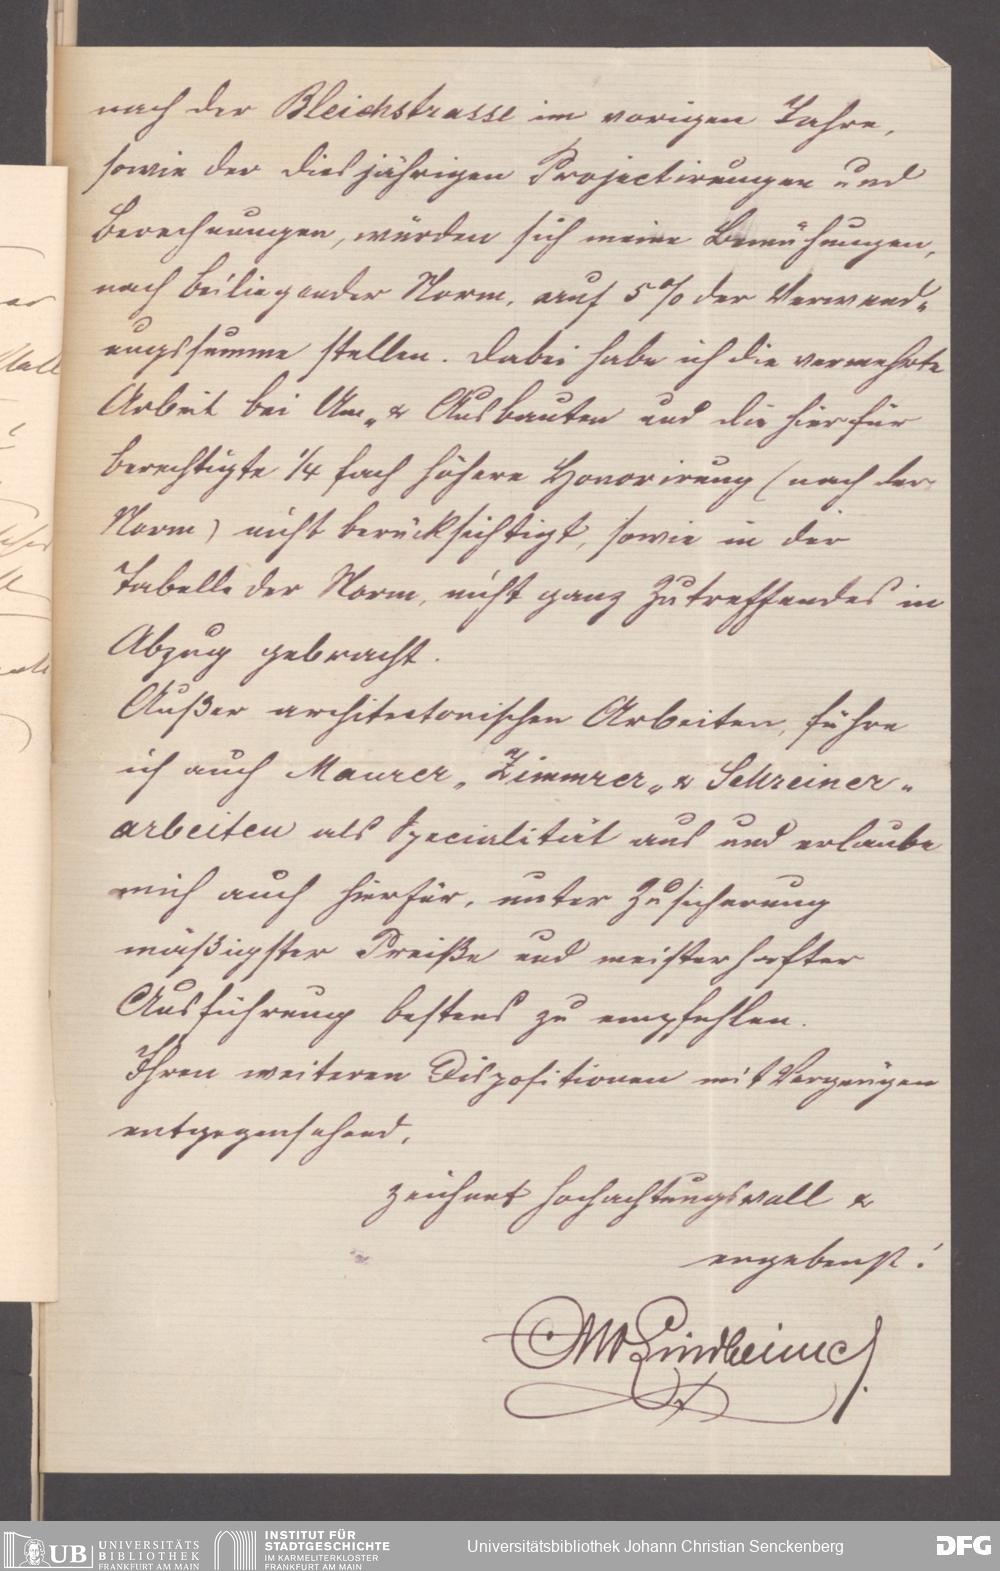 nach der Bleichstrasse im vorigen Jahre,
sowie der diesjährigen Projectirungen und
Berechnungen, würden sich meine Bemühungen,
nach beiliegender Norm, auf 5 % der Verwend-
ungssumme stellen. Dabei habe ich die vermehrte
Arbeit bei Um- & Ausbauten und die hierfür
berechtigte 1/4 fach höhere Honorirung (nach der
Norm) nicht berücksichtigt, sowie in der
Tabelle der Norm, nicht ganz Zutreffendes in
Abzug gebracht.
Außer architectonischen Arbeiten, führe
ich auch Maurer- Zimmrer- & Schreiner-
arbeiten als Specialität aus und erlaube
mich auch hierfür, unter Zusicherung
mäßigster Preiße und meisterhafter
Ausführung bestens zu empfehlen.
Ihren weiteren Dispositionen mit Vergnügen
entgegensehend,
zeichnet hochachtungsvoll &
ergebenst!
Lindheimer
UB UNIVERSITÄTS
BIBLIOTHEK
FRANKFURT AM MAIN
INSTITUT FÜR
STADTGESCHICHTE
IM KARMELITERKLOSTER
FRANKFURT AM MAIN
Universitätsbibliothek Johann Christian Senckenberg
DFG